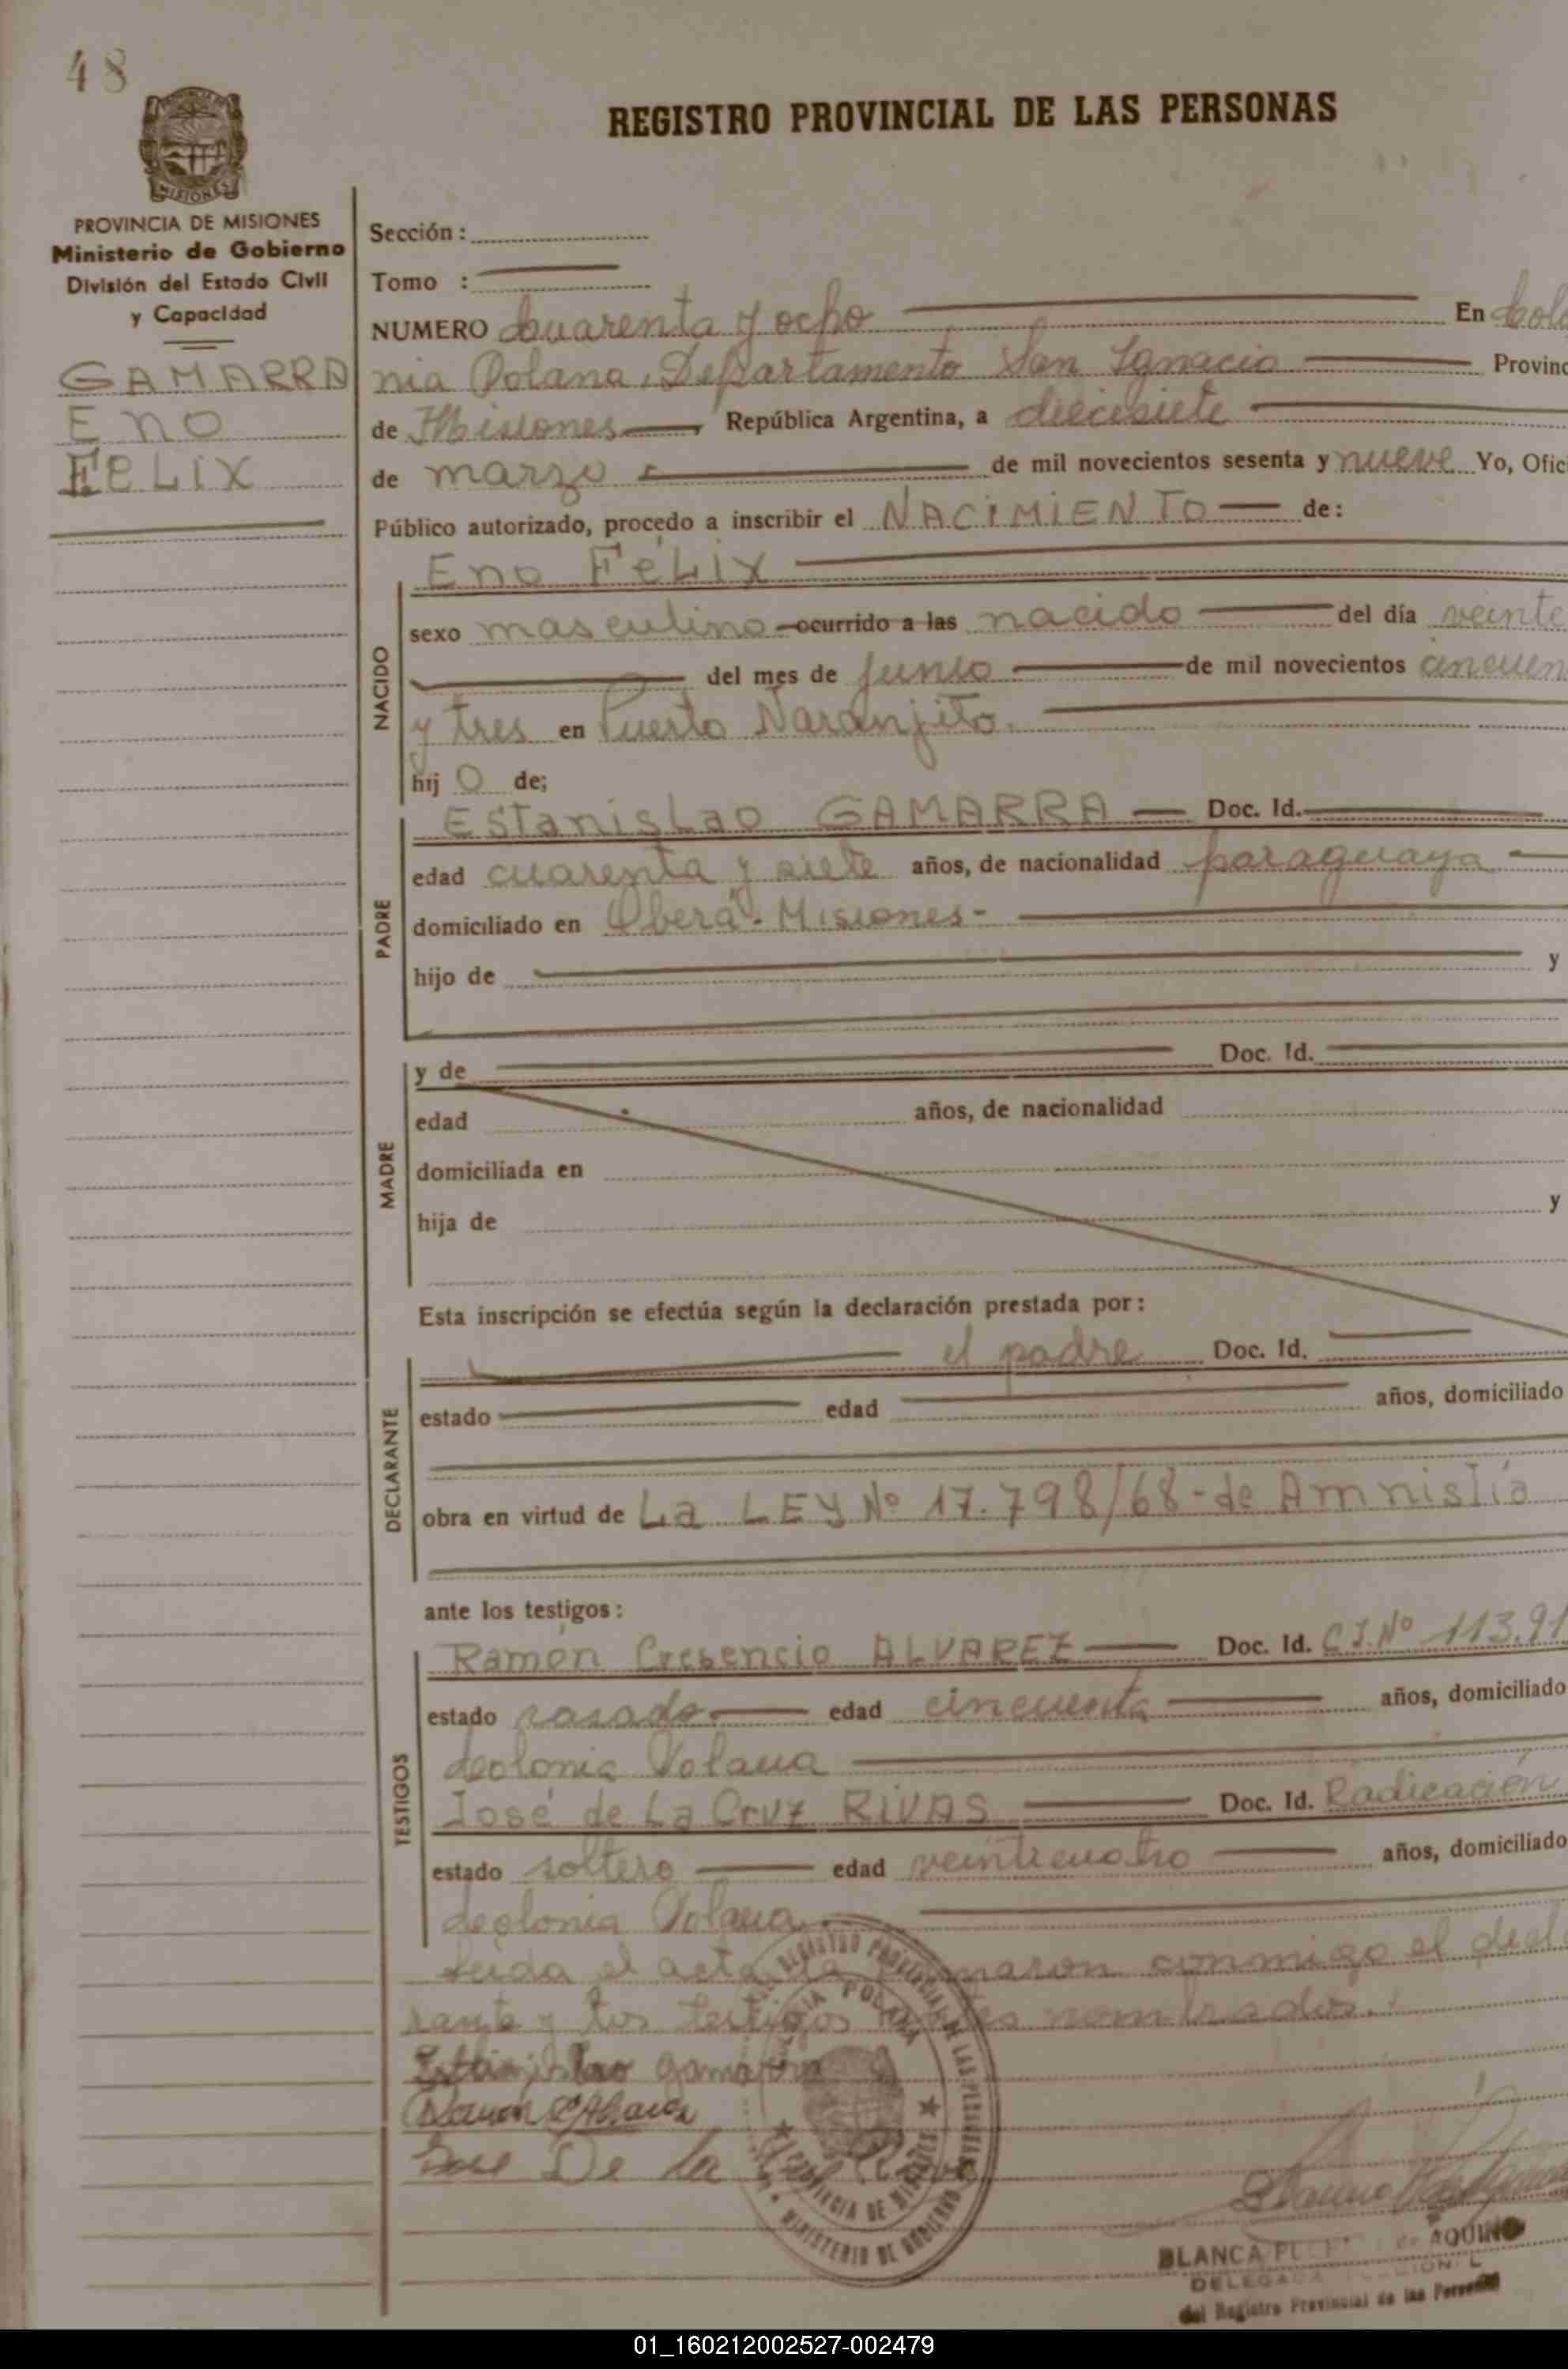 48
REGISTRO PROVINCIAL DE LAS PERSONAS
MISIONES
PROVINCIA DE MISIONES
Ministerio de Gobierno
División del Estado Civil
y Capacidad
GAMARRA
Eno
FeLix
Sección :
Tomo :
NUMERO Cuarenta y ocho En Colo
nia Polana, Departamento San Ignacio Provinc
de Misiones República Argentina, a diecisiete
de marzo de mil novecientos sesenta y nueve Yo, Ofic
Público autorizado, procedo a inscribir el NACIMIENTO de:
NACIDO
Eno FéLix
sexo masculino ocurrido a las nacido del día veinte
del mes de junio de mil novecientos cincuen
y tres en Puerto Naranjito.
hij o de;
PADRE
Estanislao GAMARRA Doc. Id.
edad cuarenta y siete años, de nacionalidad paraguaya
domiciliado en Oberá - Misiones -
hijo de y
MADRE
y de Doc. Id.
edad años, de nacionalidad
domiciliada en
hija de y
Esta inscripción se efectúa según la declaración prestada por:
DECLARANTE
el padre Doc. Id.
estado edad años, domiciliado
obra en virtud de La LEY Nº 17.798/68 - de Amnistía
ante los testigos:
TESTIGOS
Ramón Cresencio ALVAREZ Doc. Id. C.I. Nº 113.91
estado casado edad cincuenta años, domiciliado
Colonia Polana
José de La Cruz RIVAS Doc. Id. Radicación
estado soltero edad veinticuatro años, domiciliado
Colonia Polana
Leida el acta la firmaron conmigo el decla
rante y los testigos antes nombrados.
Estanislao Gamarra
Ramon C Alvarez
Jose De la Cruz Rivas
REGISTRO PROVINCIAL DE LAS PERSONAS
COLONIA POLANA
PROVINCIA DE MISIONES
MINISTERIO DE GOBIERNO
BLANCA de AQUINO
DELEGADA
del Registro Provincial de las Personas
01_160212002527-002479